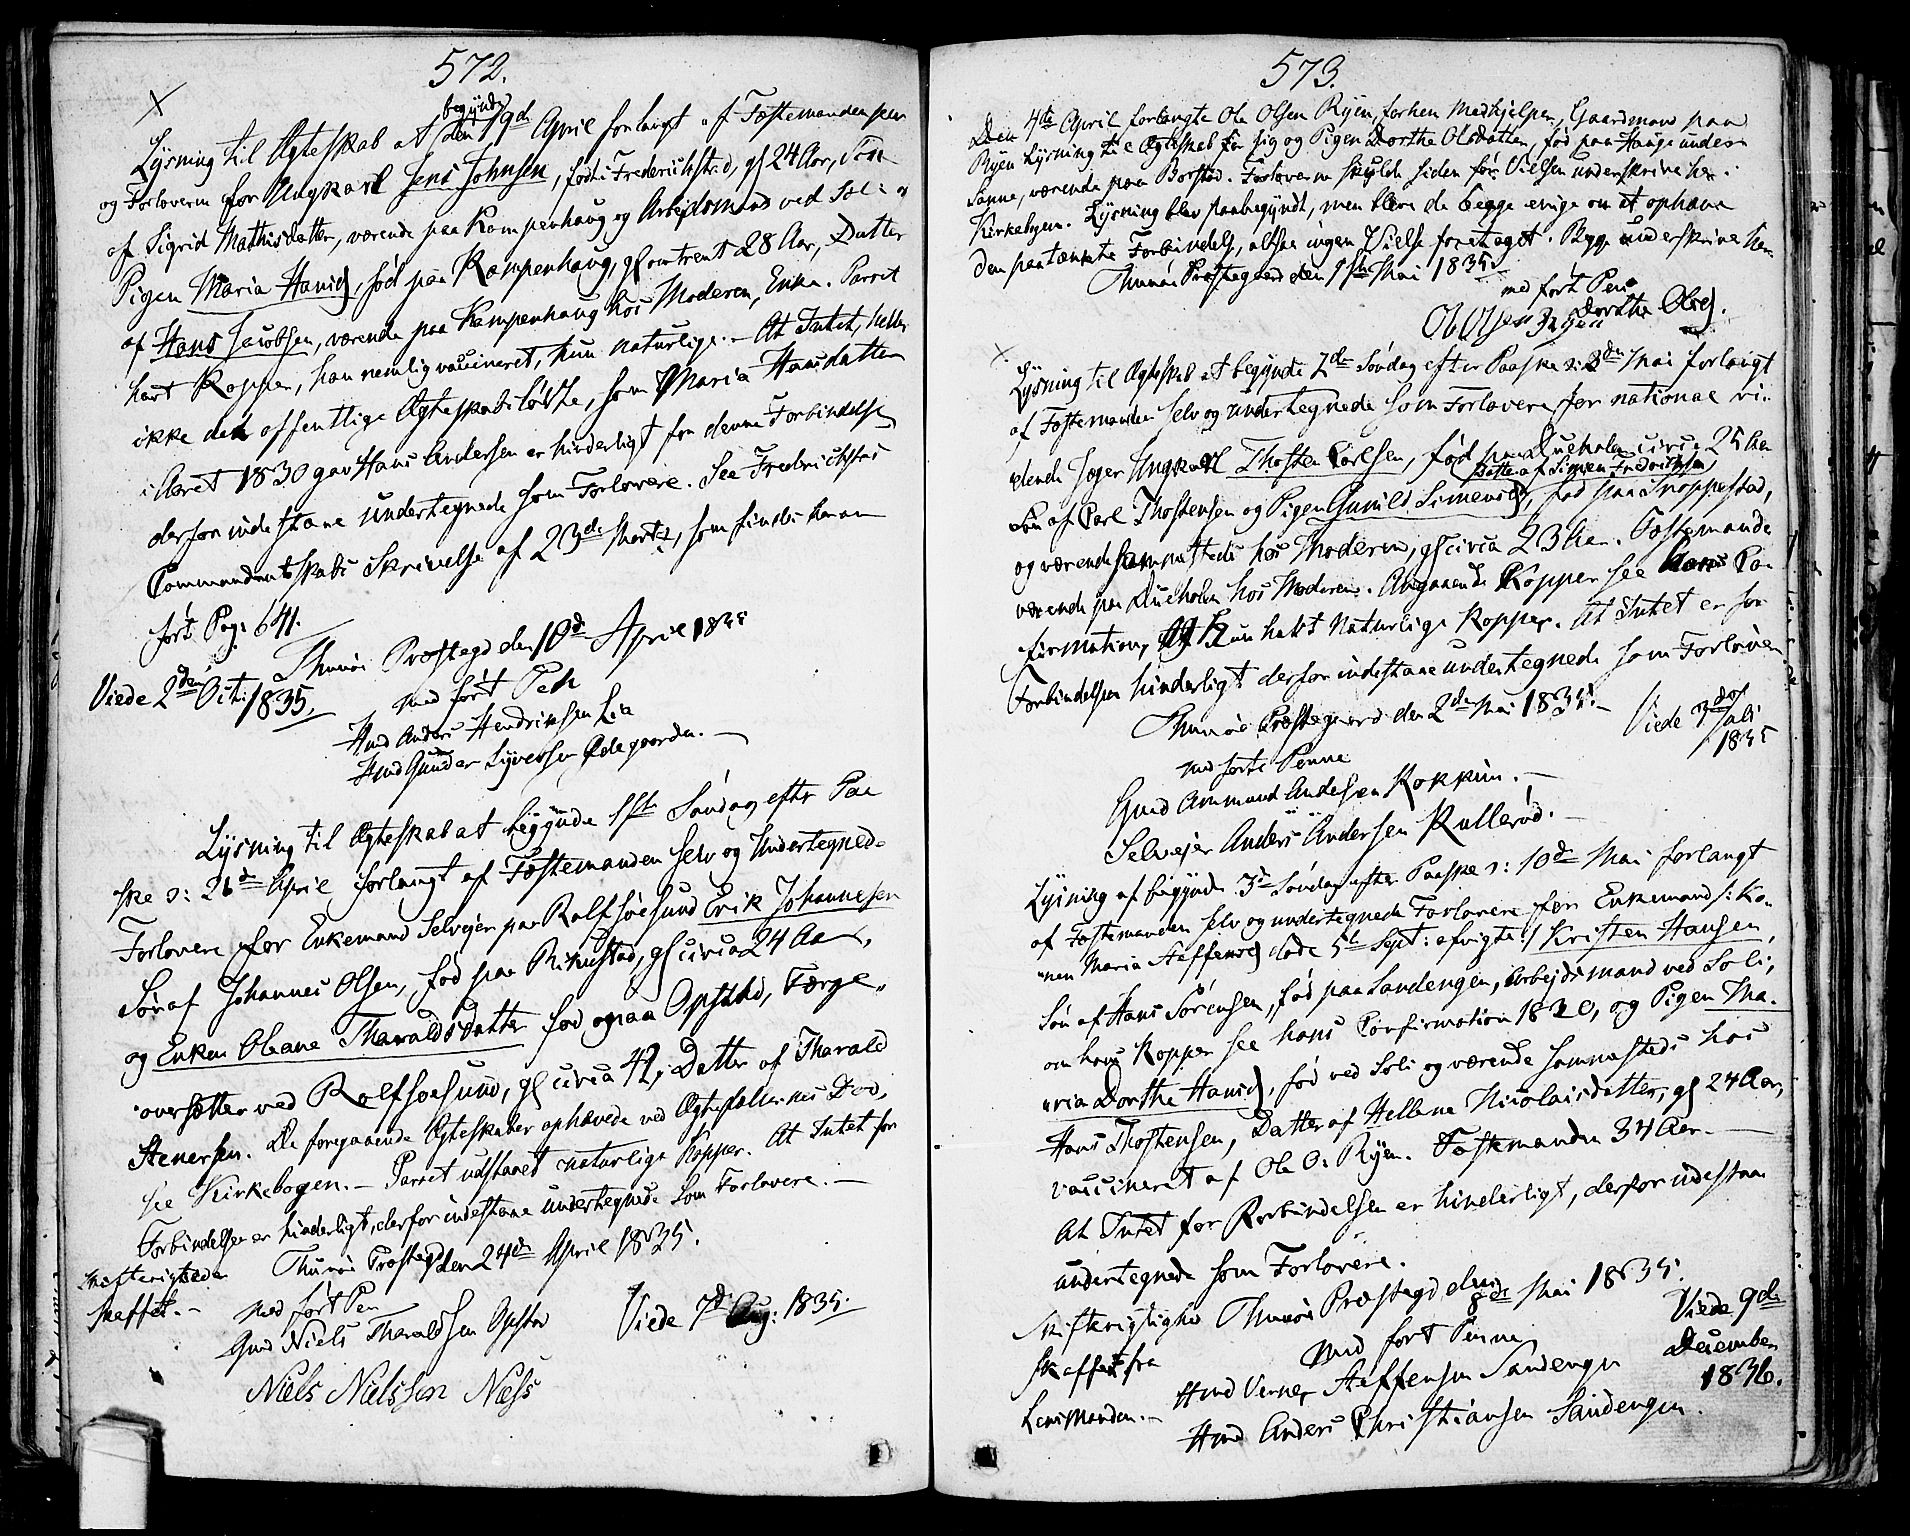 572.
×
begynde
Lysning til Ægteskab at den 19de April forlangt af Fæstemanden selv
og Forloverne for Ungkarl Jens Johnsen, født i Frederichstad, gl 24 Aar, Søn
af Sigrid Mathisdatter, værende paa Kampenhaug og Arbejdsmand ved Soli og
Pigen Maria Hansd, fød paa Kampenhaug, gl omtrent 28 Aar, Datter
af Hans Jacobsen, værende paa Kampenhaug hos Moderen, Enke. Parret
havt Kopper, han nemlig vaccineret, hun naturlige. – At Intet, heller
ikke det offentlige Ægteskabsløfte, som Maria Hansdatter
i Aaret 1830 gav Hans Andersen er hinderligt for denne Forbindelse
derfor indestaae undertegnede som Forlovere. See Fredrichstad
Commandantskabs Skrivelse af 23de Marts, som findes her an
ført Pag: 641.
Thunøe Præstegd den 10de April 1835
Viede 2den Oct: 1835.
med ført Pen
Hmd Anders Hendriksen Lie
Hmd Gunder Syversen Ødegaarden. –
Lysning til Ægteskab at begynde 1ste Søndag efter Paa
ske ɔ: 26de April forlangt af Fæstemanden selv og Undertegnede
Forlovere for Enkemand Selvejer paa Rolfsøesund Erik Johannesen
Søn af Johannes Olsen, fød paa Rikustad, gl circa 24 Aar,
og Enken Oleane Tharaldsdatter fød paa Opstad, Færge-
oversætter ved Rolfsøesund, gl circa 42, Datter af Tharald
Stenersen. De foregaaende Ægteskaber ophævede ved Ægtefællernes Død,
see Kirkebogen. – Parret udstaaet naturlige Kopper. At Intet for
Forbindelsen er hinderligt, derfor indestaae undertegnede som Forlovere. –
Thunøe Præstegd den 24de April 1835.
Skifterigtighed
skaffet. –
med ført Pen
Gmd Niels Tharaldsen Opstad
Viede 7de Aug: 1835.
Niels Nielssen Næss
573.
Den 4de April forlangte Ole Olsen Ryen, forhen Medhjelper, Gaardmand paa
Ryen Lysning til Ægteskab for sig og Pigen Dorthe Olsdatter, fød paa Hauge under
Sanne, værende paa Borstad. Forloverne skulde siden før Vielsen underskrive her i
Kirkebogen. Lysning blev paabegyndt, men bleve de begge enige om at ophæve
den paatænkte Forbindelse, altsaa ingen Vielse foretaget. Begge underskrive her.
Thunøe Præstegaard den 1ste Mai 1835.
med ført Pen
Ol Olsen Ryen Dorthe Olsd.
×
Lysning til Ægteskab at begynde 2den Søndag efter Paaske ɔ: 3die Mai forlangt
af Fæstemanden selv og undertegnede som Forlovere for national ri-
dende Jæger Ungkarl Thosten Carlsen, fød paa Dueholen circa 25 Aar
Datter af Simen Fredrichsen
Søn af Carl Thostensen og Pigen Gunild Simensd, fød paa Snoppestad,
og værende sammesteds hos Moderen, gl circa 23 Aar. Fæstemanden
værende paa Dueholen hos Moderen. Angaaende Kopper see hans Con
firmation, og Hun havt naturlige Kopper. At Intet er for
Forbindelsen hinderligt derfor indestaae undertegnede som Forlovere
Thunøe Præstegaard den 2den Mai 1835. –
Viede 3die Juli
1835
med førte Penne
Gmd Ammund Andersen Kokkim. –
Selvejer Anders Andersen Kullerød. –
Lysning at begynde 3die Søndag efter Paaske ɔ: 10de Mai forlangt
af Fæstemanden selv og undertegnede Forlovere for Enkemand /: Ko-
nen Maria Steffensd døde 5te Sept: afvigte :/ Kristen Hansen,
Søn af Hans Sørensen, fød paa Sandengen, Arbejdsmand ved Soli,
om hans Kopper see hans Confirmation 1820, og Pigen Ma-
ria Dorthe Hansd, fød ved Soli og værende sammesteds hos
Hans Thostensen, Datter af Hellene Nicolaisdatter, gl 24 Aar,
vaccineret af Ole O: Ryen. Fæstemanden 34 Aar. –
At Intet for Forbindelsen er hinderligt, derfor indestaae
undertegnede som Forlovere.
Thunøe Præstegd den 8de Mai 1835.
Skifterigtighed
skaffet fra
Lensmanden. –
Viede 9de
December
1836.
med ført Penne
Hmd Verner Steffensen Sandengen
Hmd Anders Christiansen Sandengen.